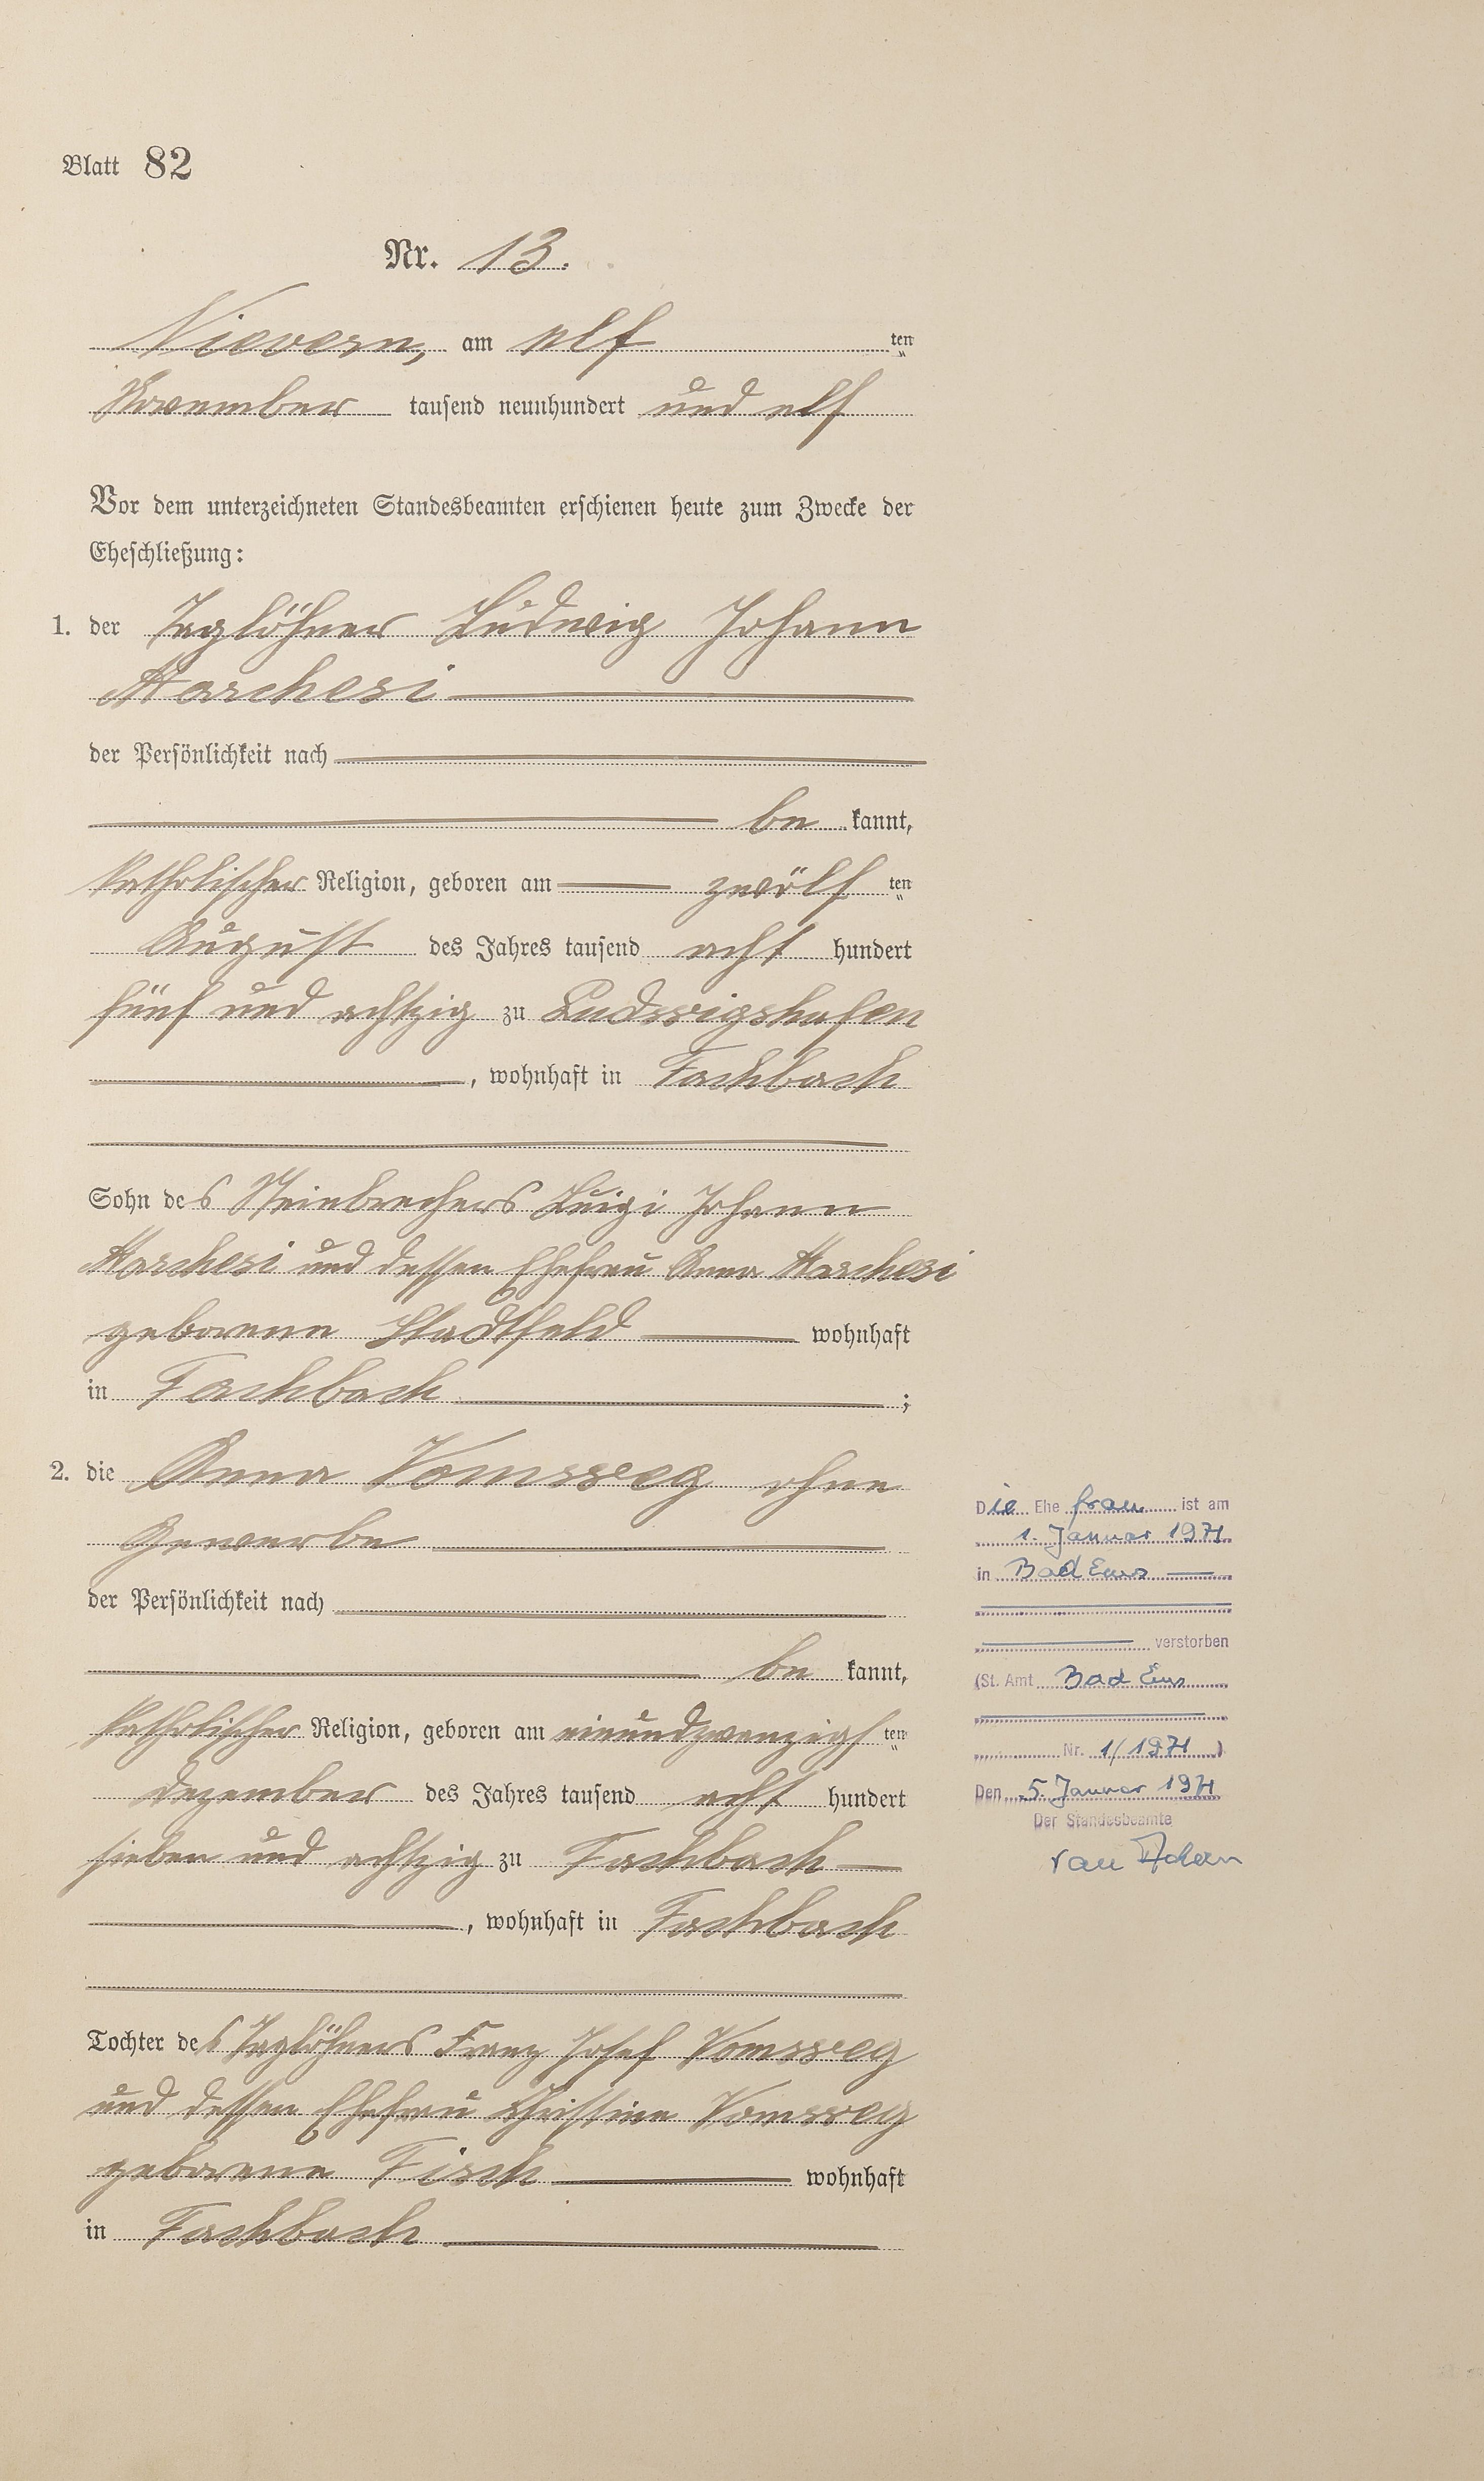 Blatt 82
Nr. 13.
Nievern, am elf ten
November tausend neunhundert und elf
Vor dem unterzeichneten Standesbeamten erschienen heute zum Zwecke der
Eheschließung:
1. der Taglöhner Ludwig Johann
Marchesi
der Persönlichkeit nach
be kannt,
katholischer Religion, geboren am zwölf ten
August des Jahres tausend acht hundert
fünf und achtzig zu Ludwigshafen
, wohnhaft in Fachbach
Sohn des Steinbrechers Luigi Johann
Marchesi und dessen Ehefrau Anna Marchesi
geborene Stadtfeld wohnhaft
in Fachbach ;
2. die Anna Vomsweg ohne
Gewerbe
der Persönlichkeit nach
be kannt,
katholischer Religion, geboren am einundzwanzigs ten
Dezember des Jahres tausend acht hundert
sieben und achtzig zu Fachbach
, wohnhaft in Fachbach
Tochter des Taglöhners Franz Josef Vomsweg
und dessen Ehefrau Christine Vomsweg
geborene Fisch wohnhaft
in Fachbach
Die Ehe frau ist am
1. Januar 1971
in Bad Ems
verstorben
(St. Amt Bad Ems
Nr. 1/1971 )
Den 5. Januar 1971
Der Standesbeamte